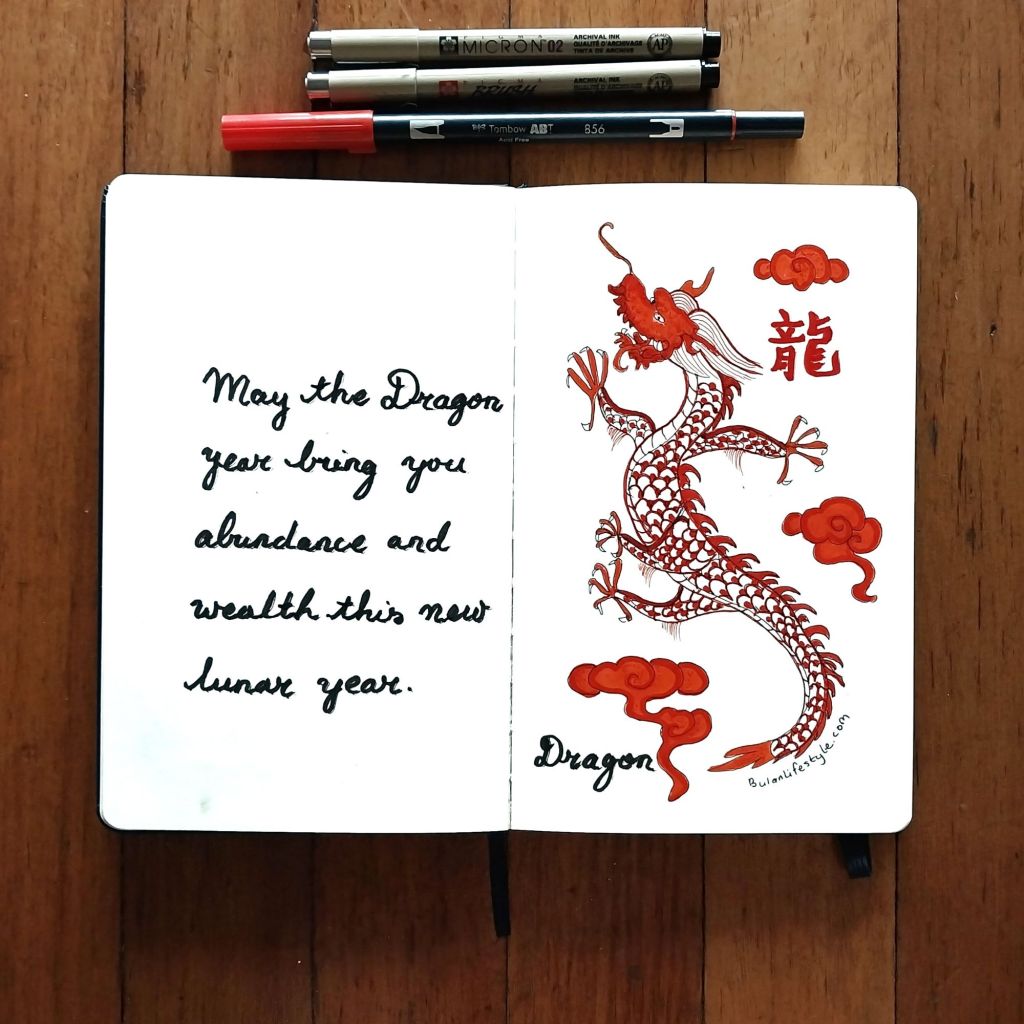 PIGMA
MICRON 02
ARCHIVAL INK
QUALITÉ D'ARCHIVAGE
TINTA DE ARCHIVO
AP
PIGMA
BRUSH
ARCHIVAL INK
AP
Tombow ABT 856
Acid Free
May the Dragon
year bring you
abundance and
wealth this new
lunar year.
龍
Dragon
BulanLifestyle.com